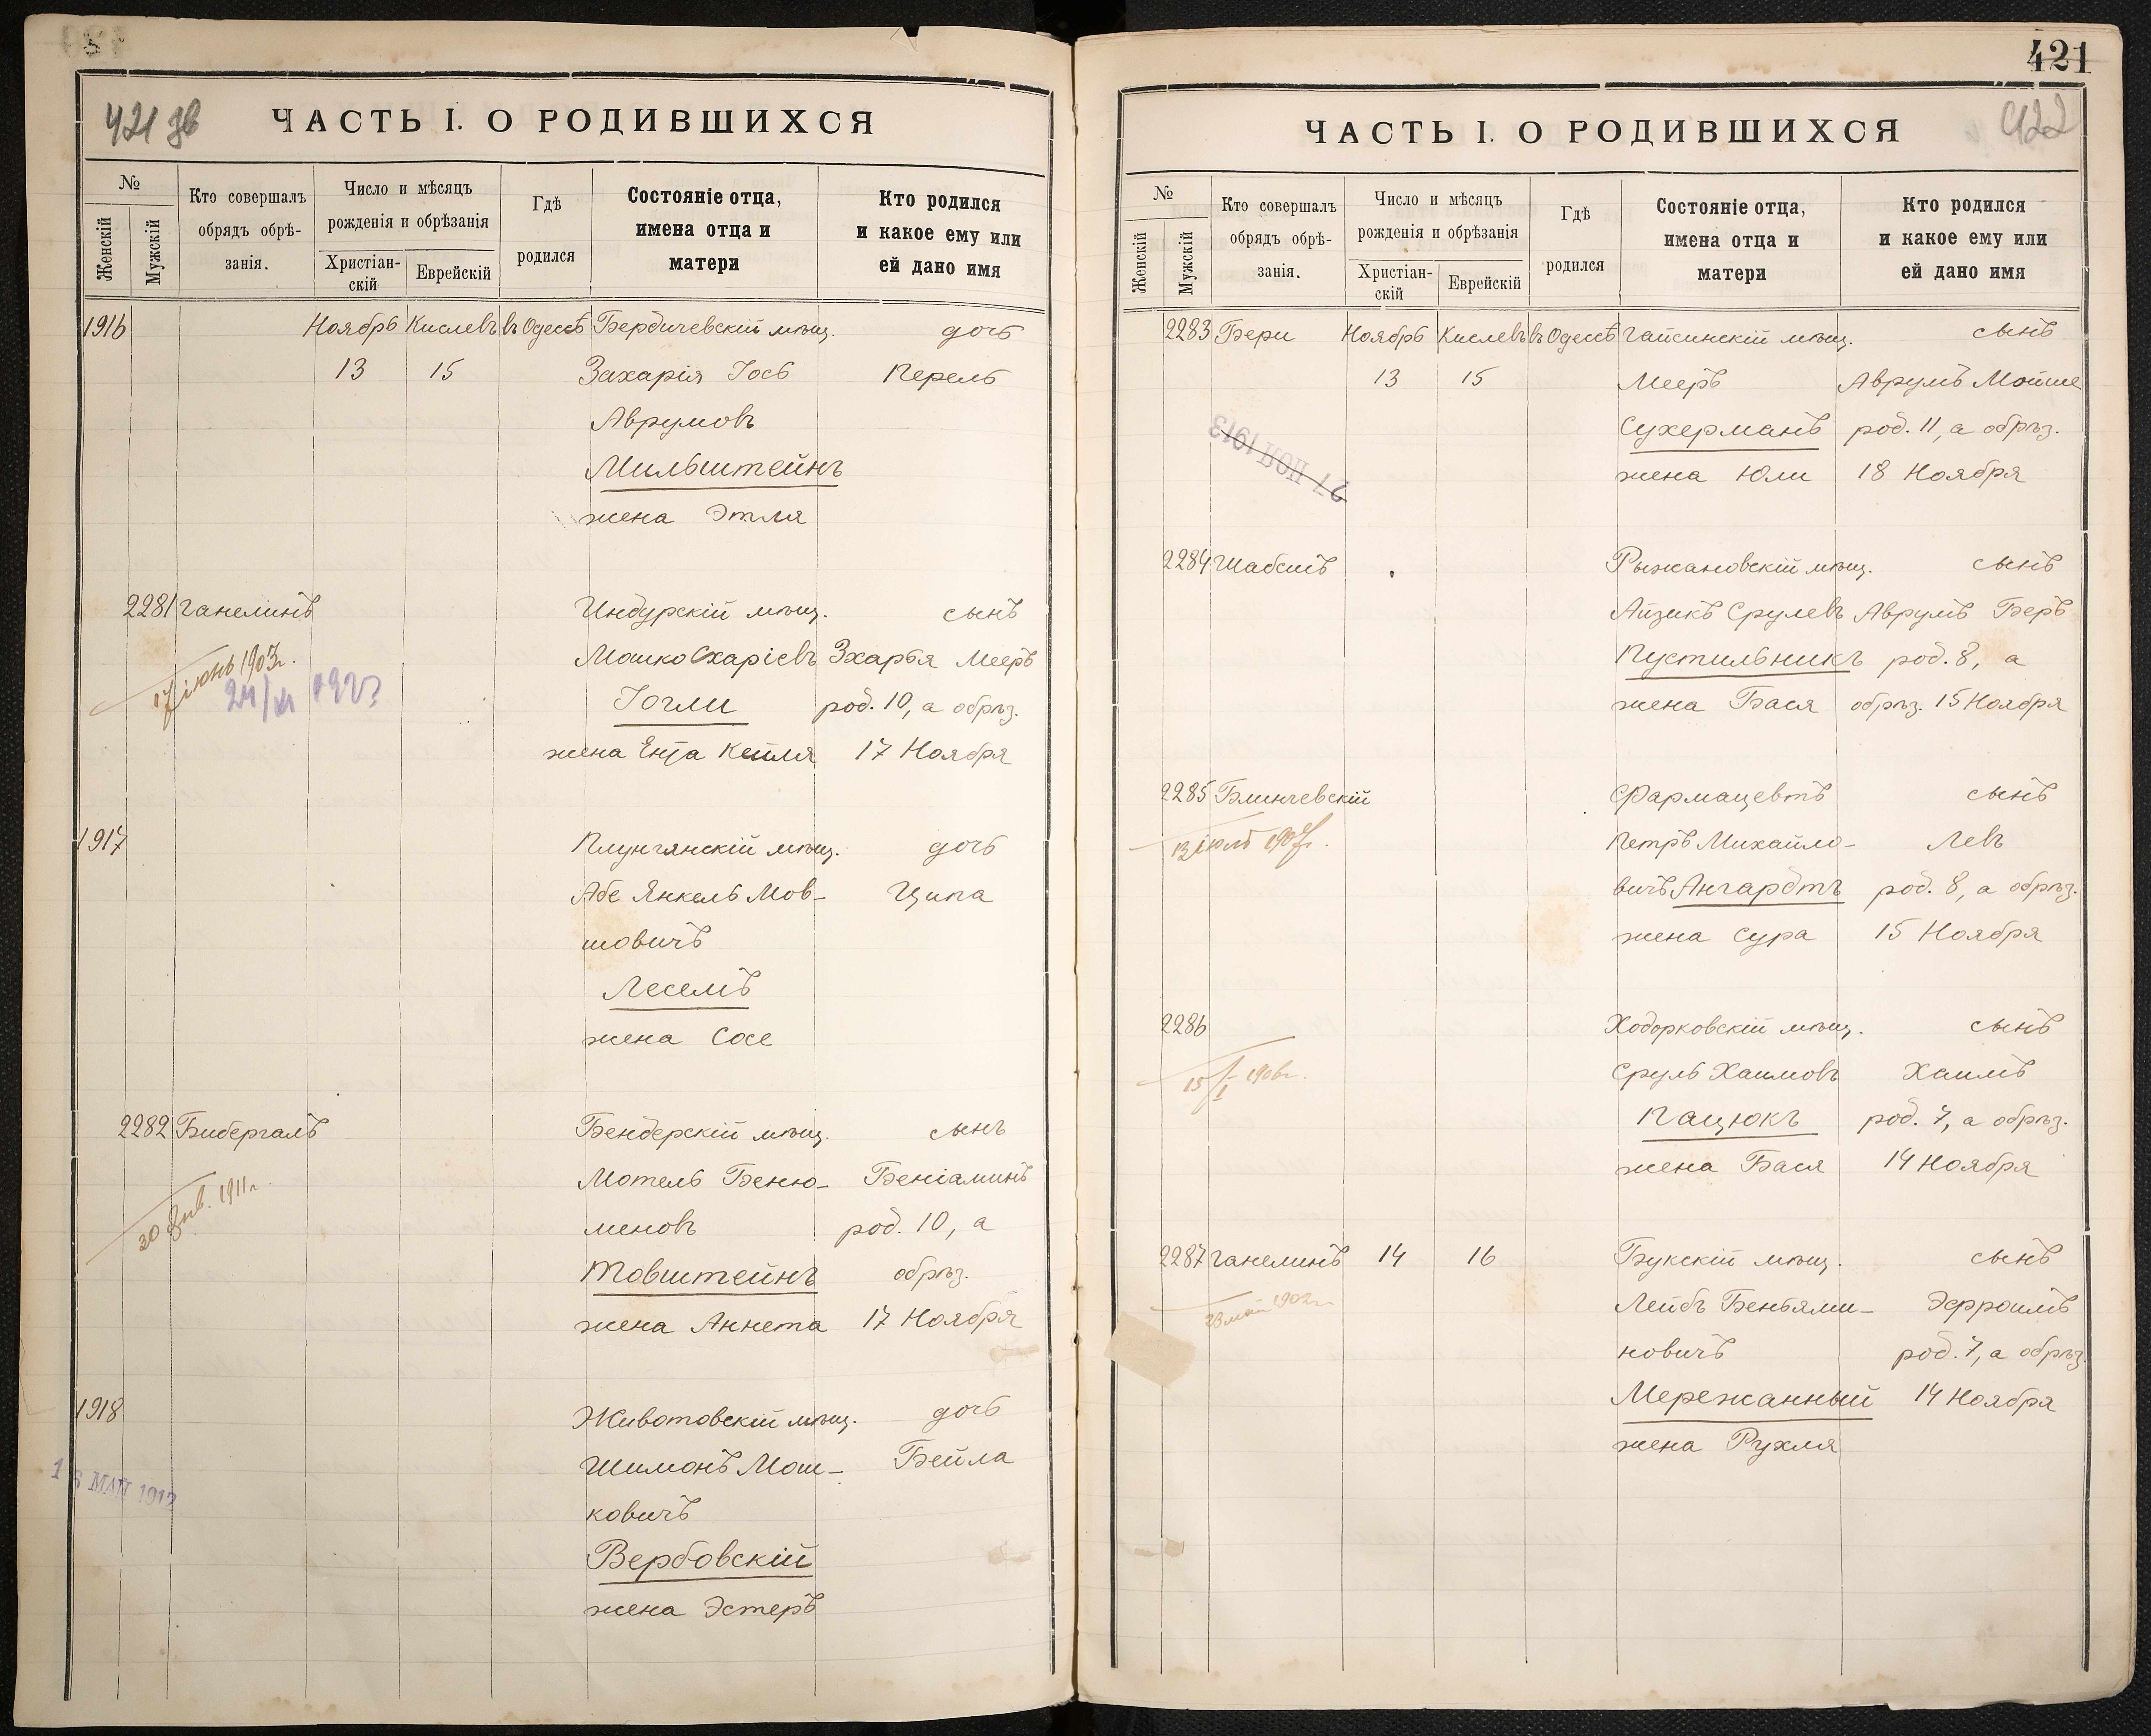 421 зв
ЧАСТЬ I. О РОДИВШИХСЯ
№
Женскій
Мужскій
Кто совершалъ
обрядъ обрѣ-
занія.
Число и мѣсяцъ
рожденія и обрѣзанія
Христіан-
скій
Еврейскій
Гдѣ
родился
Состояніе отца,
имена отца и
матери
Кто родился
и какое ему или
ей дано имя
1916 Ноябрь Кислевъ въ Одессѣ Бердичевскій мѣщ. дочь
13 15 Захарія Іось Перель
Аврумовъ
Мильштейнъ
жена Этля
2281 Ганелинъ Индурскій мѣщ. сынъ
Мошко Схаріевъ Зхарья Мееръ
17 іюнь 1903г.
Іогли род. 10, а обрѣз.
жена Ента Кейля 17 Ноября
1917 Плунгянскій мѣщ. дочь
Абе Янкель Мов- Ципа
шовичъ
Леселъ
жена Сосе
2282 Бибергалъ Бендерскій мѣщ. сынъ
Мотель Беню- Беніаминъ
30 янв. 1911г.
меновъ род. 10, а
Товштейнъ обрѣз.
жена Аннета 17 Ноября
1918 Животовскій мѣщ. дочь
Шимонъ Мош- Бейла
МАЙ 1912
ковичъ
Вербовскій
жена Эстеръ
421
422
ЧАСТЬ I. О РОДИВШИХСЯ
№
Женскій
Мужскій
Кто совершалъ
обрядъ обрѣ-
занія.
Число и мѣсяцъ
рожденія и обрѣзанія
Христіан-
скій
Еврейскій
Гдѣ
родился
Состояніе отца,
имена отца и
матери
Кто родился
и какое ему или
ей дано имя
2283 Бери Ноябрь Кислевъ въ Одессѣ Гайсинскій мѣщ. сынъ
13 15 Мееръ Аврумъ Мойше
Сухерманъ род. 11, а обрѣз.
27 1913
жена Юли 18 Ноября
2284 Шабсисъ Рыжановскій мѣщ. сынъ
Айзикъ Срулевъ Аврумъ Беръ
Пустильникъ род. 8, а
жена Бася обрѣз. 15 Ноября
2285 Блинчевскій Фармацевтъ сынъ
Петръ Михайло- Левъ
вичъ Ангардтъ род. 8, а обрѣз.
жена Сура 15 Ноября
2286 Ходорковскій мѣщ. сынъ
Сруль Хаимовъ Хаимъ
15/I 1906г.
Пацюкъ род. 7, а обрѣз.
жена Бася 14 Ноября
2287 Ганелинъ 14 16 Букскій мѣщ. сынъ
Лейбъ Беньями- Эфроимъ
новичъ род. 7, а обрѣз.
Мережанный 14 Ноября
жена Рухля